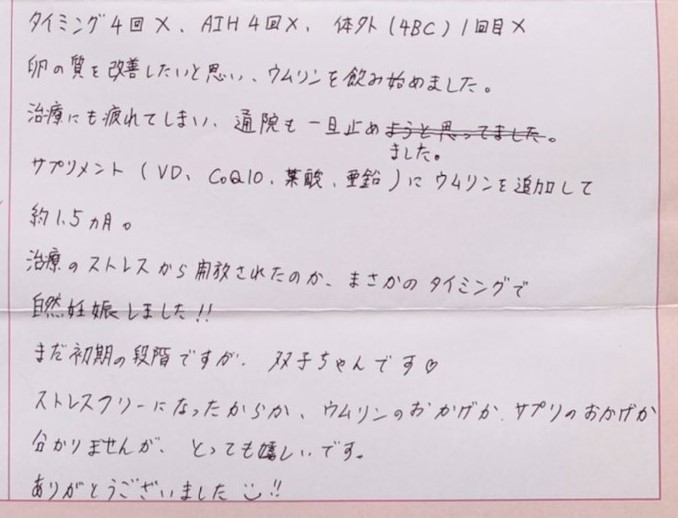 タイミング4回×、AIH4回×、体外(4BC)1回目×
卵の質を改善したいと思い、ウムリンを飲み始めました。
治療にも疲れてしまい、通院も一旦止めようと思ってました。
ました。
サプリメント(VD、CoQ10、葉酸、亜鉛)にウムリンを追加して
約1.5ヵ月。
治療のストレスから開放されたのか、まさかのタイミングで
自然妊娠しました!!
まだ初期の段階ですが、双子ちゃんです♡
ストレスフリーになったからか、ウムリンのおかげか、サプリのおかげか
分かりませんが、とっても嬉しいです。
ありがとうございました!!